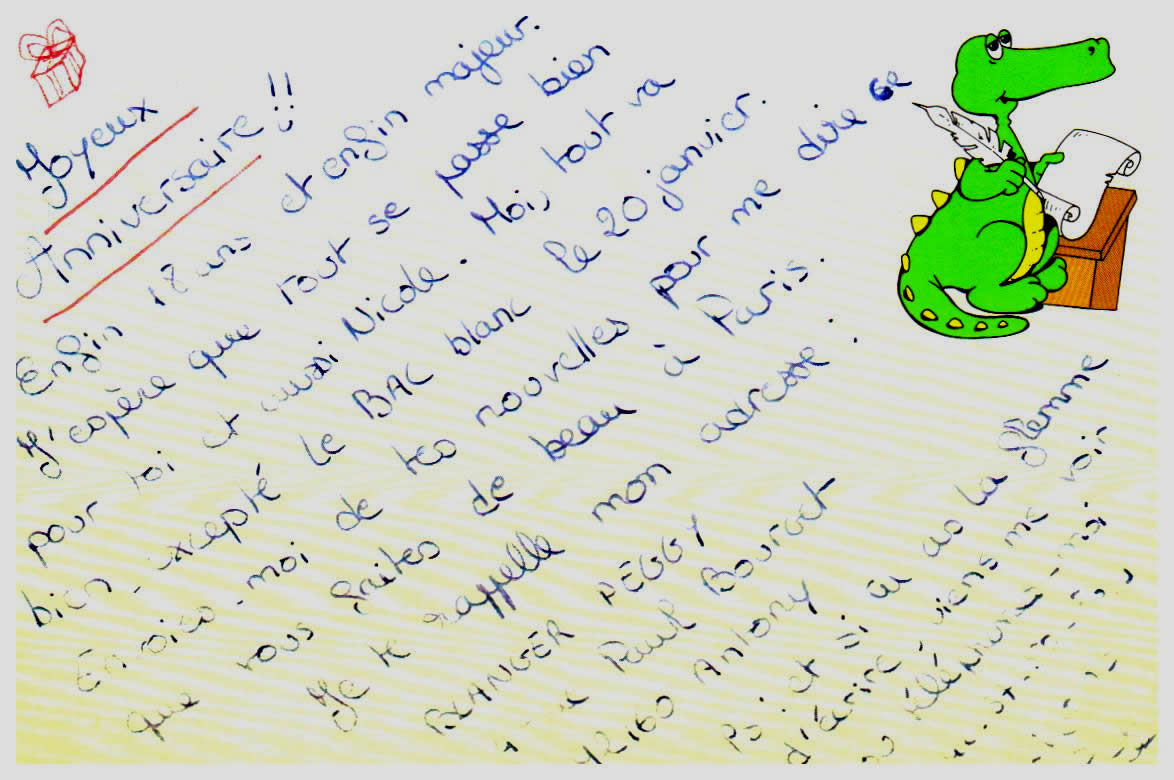 Joyeux
Anniversaire !!
Enfin 18 ans et enfin majeur.
J'espère que tout se passe bien
pour toi et aussi Nicole. Moi, tout va
bien, excepté le BAC blanc le 20 janvier.
Envoies-moi de tes nouvelles pour me dire ce
que vous faites de beau à Paris.
Je te rappelle mon adresse :
PEGGY
Paul Bourget
Antony
Ps : et si tu as la flemme
d'écrire, viens me voir
ou